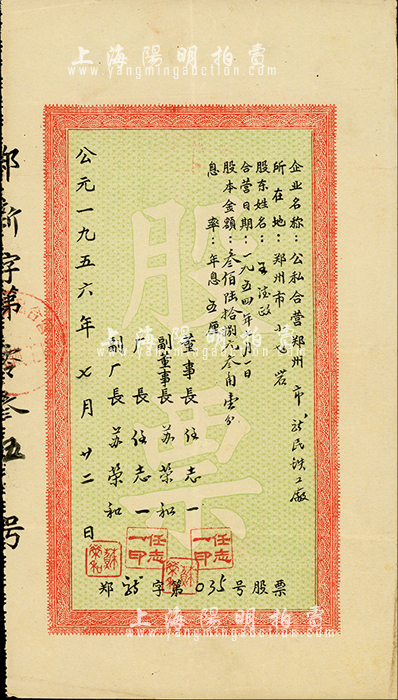 上海陽明拍賣
www.yangmingauction.com
企业名称：公私合营郑州市新民铁工廠
所在地：郑州市
股东姓名：王
合营日期：一九五四年 月一日
股本金額：叁佰陆拾捌元叁角壹分
息率：年息五厘
董事長 任志一
副董事長 苏荣和
厂長 任志一
副厂長 苏荣和
公元一九五六年七月廿二日
股票
任志一印
郑新字第035号股票
郑新字第零叁五号
上海陽明拍賣
www.yangmingauction.com